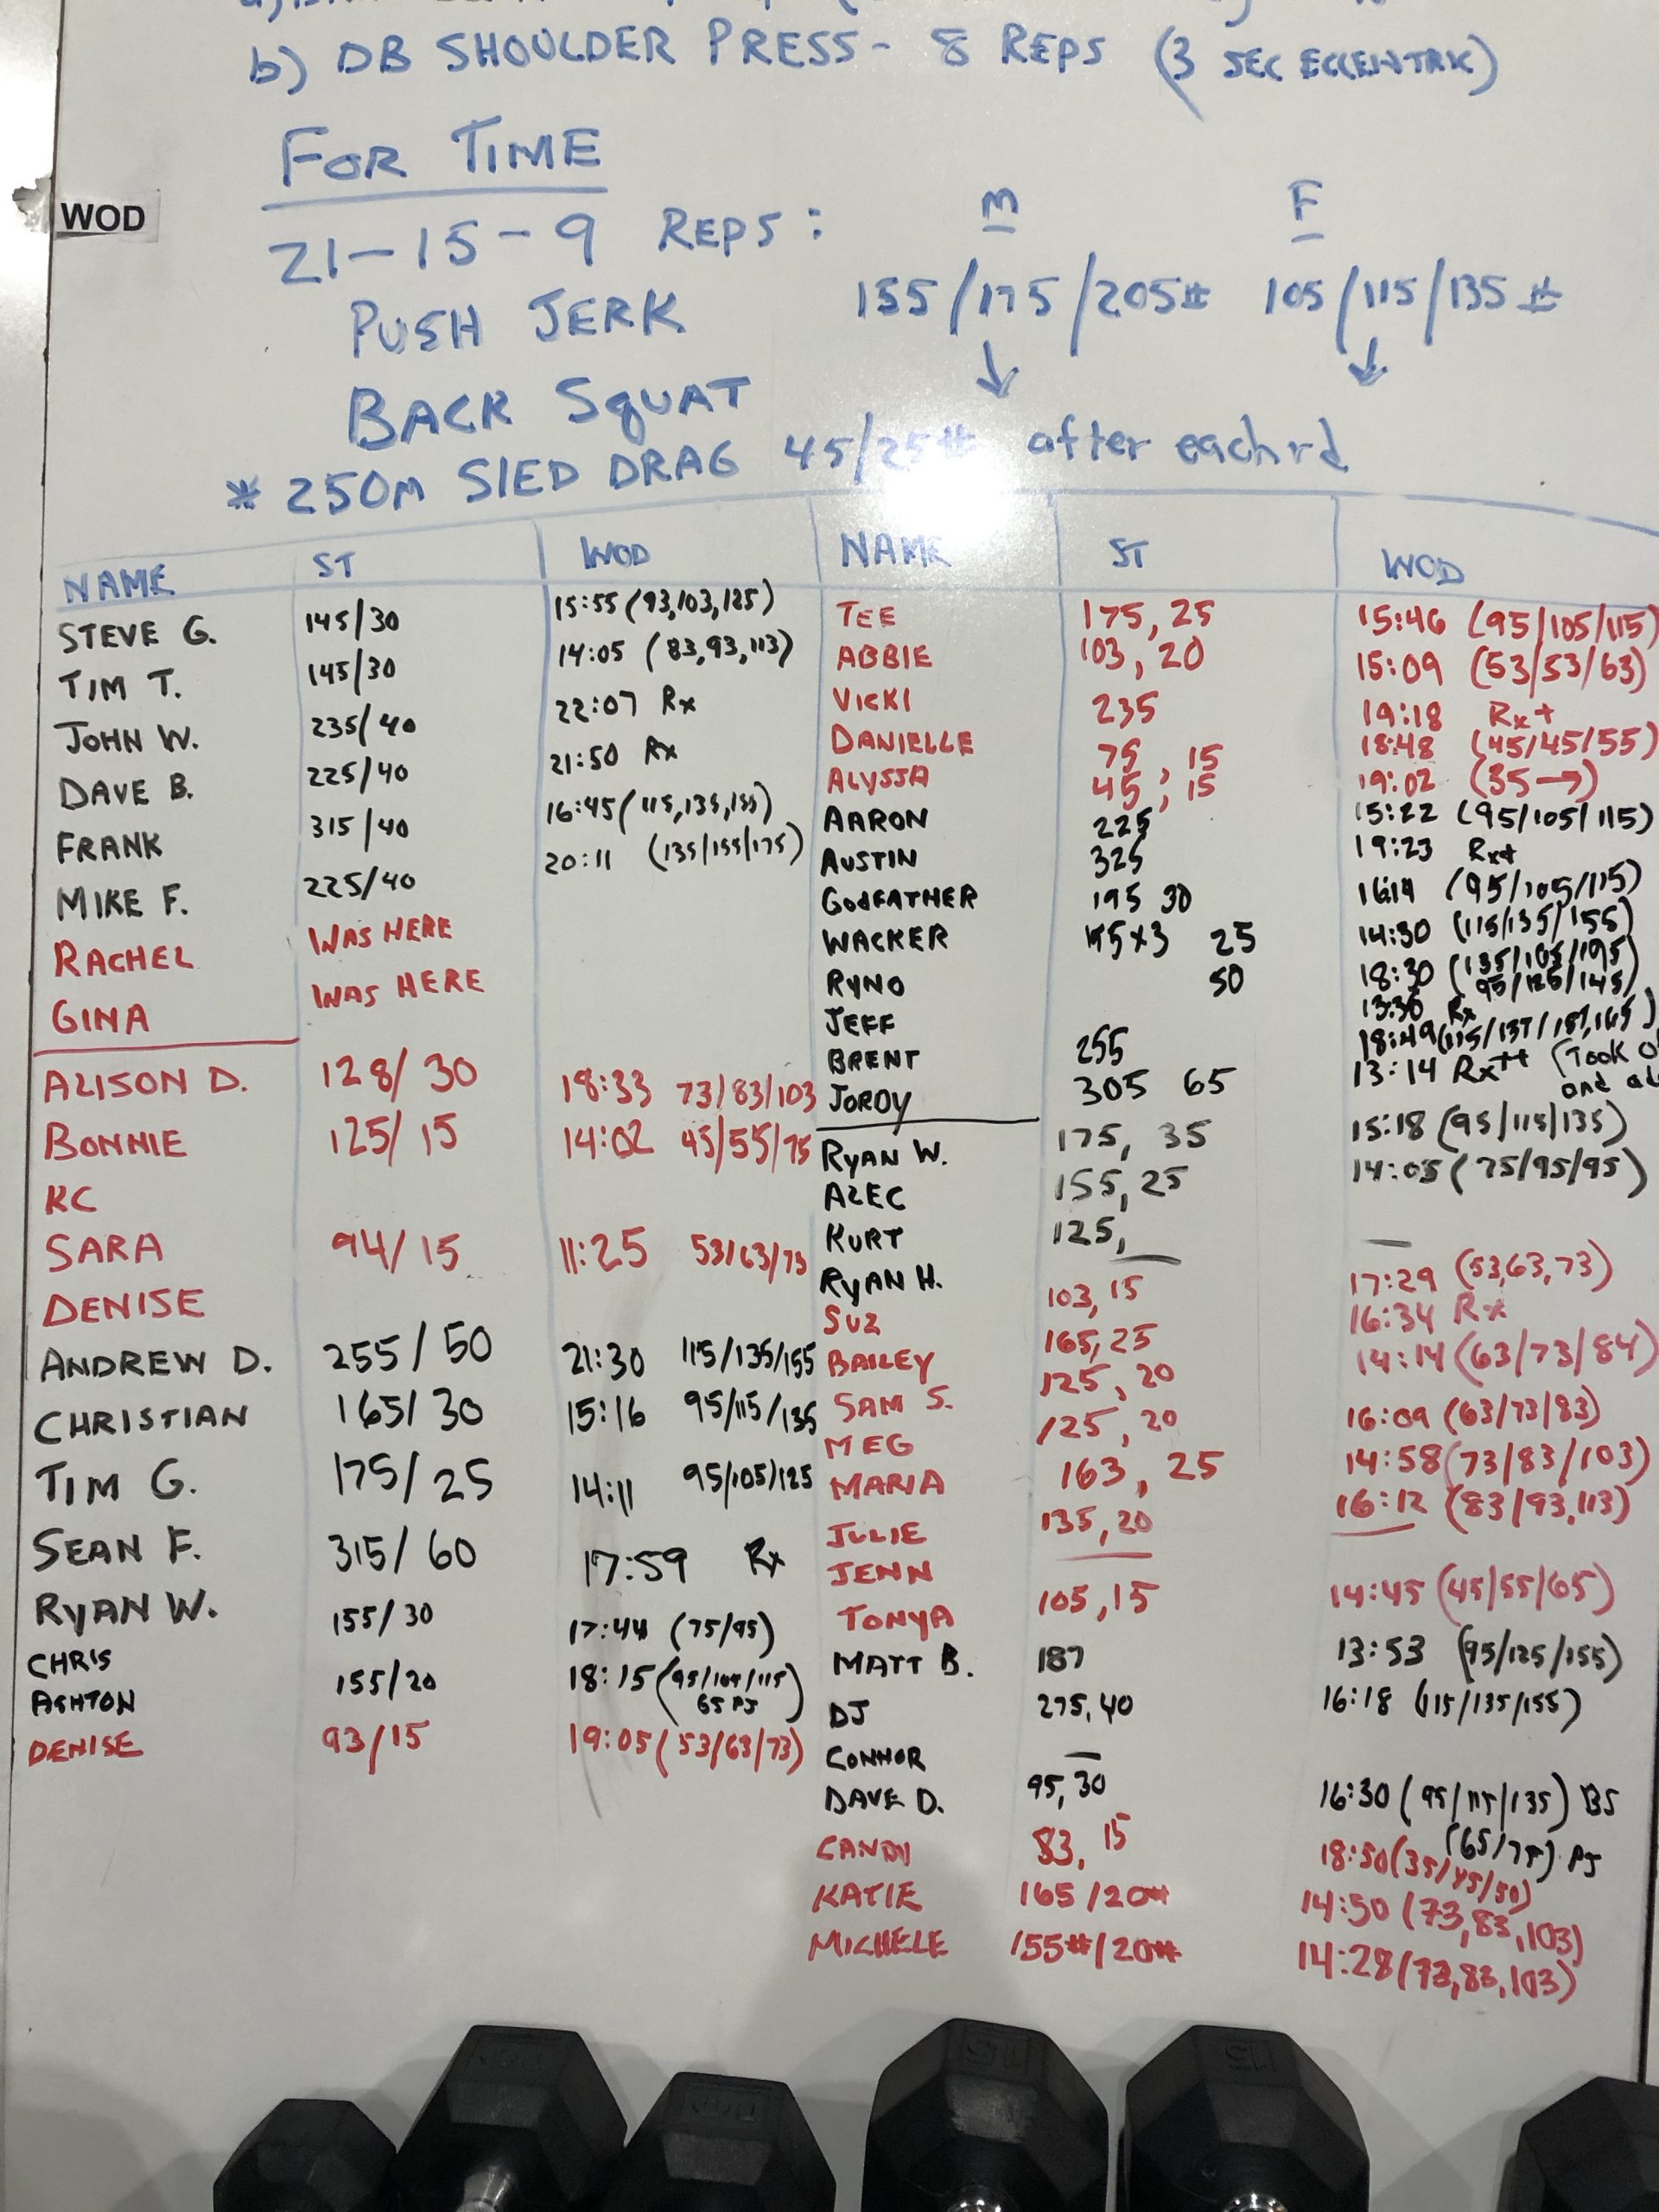 b) DB SHOULDER PRESS - 8 REPS (3 SEC ECCENTRIC)
FOR TIME
WOD
21-15-9 REPS: M F
PUSH JERK 155/175/205# 105/115/135#
BACK SQUAT
* 250M SLED DRAG 45/25# after each rd
NAME ST WOD
STEVE G. 145/30 15:55 (93,103,125)
TIM T. 145/30 14:05 (83,93,113)
JOHN W. 235/40 22:07 Rx
DAVE B. 225/40 21:50 Rx
FRANK 315/40 16:45 (115,135,155)
MIKE F. 225/40 20:11 (135/155/175)
RACHEL WAS HERE
GINA WAS HERE
ALISON D. 128/30 18:33 73/83/103
BONNIE 125/15 14:02 45/55/75
KC
SARA 94/15 11:25 53/63/73
DENISE
ANDREW D. 255/50 21:30 115/135/155
CHRISTIAN 165/30 15:16 95/115/135
TIM G. 175/25 14:11 95/105/125
SEAN F. 315/60 17:59 Rx
RYAN W. 155/30 17:44 (75/95)
CHRIS
ASHTON 155/20 18:15 (95/105/115
65 PJ)
DENISE 93/15 19:05 (53/63/73)
NAME ST WOD
TEE 175, 25 15:46 (95/105/115)
ABBIE 103, 20 15:09 (53/53/63)
VICKI 235 19:18 Rx+
DANIELLE 75, 15 18:48 (45/45/55)
ALYSSA 45, 15 19:02 (35→)
AARON 225 15:22 (95/105/115)
AUSTIN 325 19:23 Rx+
GODFATHER 195 30 16:14 (95/105/115)
WACKER x3 25 14:30 (115/135/155)
RYNO 50 18:30
95/125/145)
JEFF 13:36 Rx
BRENT 255 18:49
JORDY 305 65 13:14 Rx++ (Took
and
RYAN W. 175, 35 15:18 (95/115/135)
ALEC 155, 25 14:05 (75/95/95)
KURT 125, —
RYAN H. —
SUZ 103, 15 17:29 (53,63,73)
BAILEY 165, 25 16:34 Rx
SAM S. 125, 20 14:14 (63/73/84)
MEG 125, 20 16:09 (63/73/83)
MARIA 163, 25 14:58 (73/83/103)
JULIE 135, 20 16:12 (83/93,113)
JENN —
TONYA 105, 15 14:45 (45/55/65)
MATT B. 187 13:53 (95/125/155)
DJ 275, 40 16:18 (115/135/155)
CONNOR —
DAVE D. 95, 30 16:30 (95/115/135) BS
(65/75) PJ
CANDY 83, 15 18:50 (35/45/50)
KATIE 165/20# 14:50 (73,83,103)
MICHELE 155#/20# 14:28 (73,83,103)